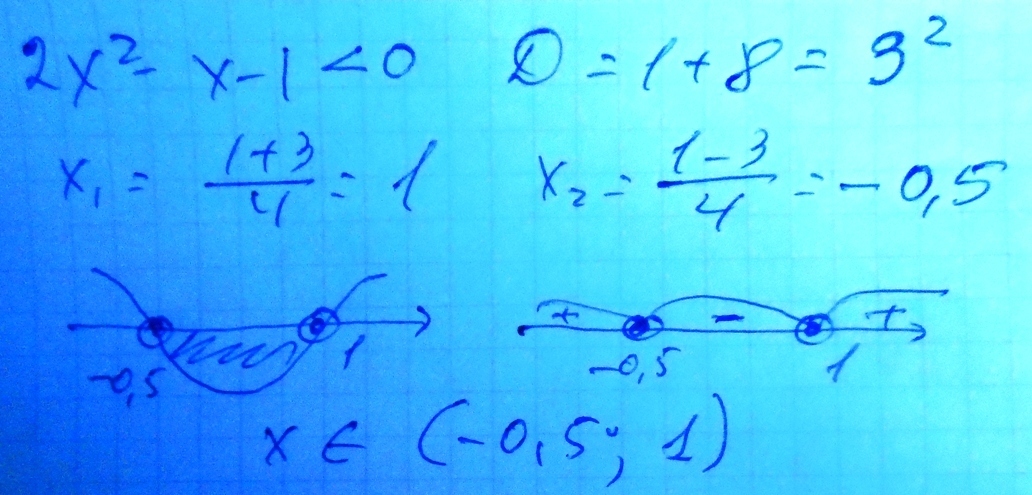 2x² - x - 1 < 0 D = 1 + 8 = 3²
x₁ = (1+3)/4 = 1 x₂ = (1-3)/4 = -0,5
-0,5 1 + - + -0,5 1
x ∈ (-0,5; 1)